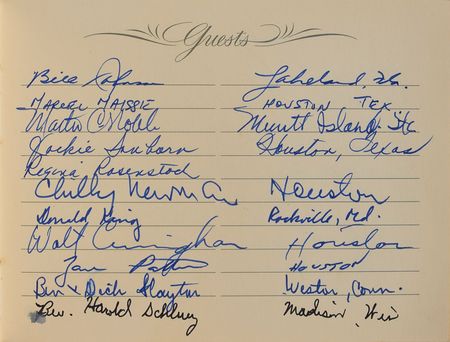 Guests
Bill Johnson Lakeland, Fla.
MARCEL MAISSIE HOUSTON TEX
Martin C Merritt Island, Fla
Jackie Sanborn Houston, Texas
Regina Rosenstock
Chilly Newman Houston
Donald King Rockville, Md.
Walt Cunningham Houston
HOUSTON
Bev & Dick Slayton Weston, Conn.
Rev. Harold Madison, Wis